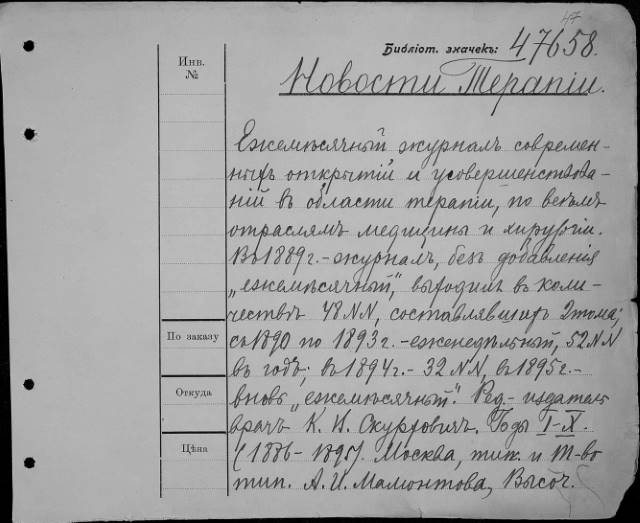 47
Библіот. значекъ: 47658.
Инв. №
Новости Терапіи.
Ежемѣсячный журналъ современ-
ныхъ открытій и усовершенствова-
ній въ области терапіи, по всѣмъ
отраслямъ медицины и хирургіи.
Въ 1889 г. - журналъ, безъ добавленія
„ежемѣсячный", выходилъ въ коли-
чествѣ 48 NN, составлявшихъ 2 тома;
съ 1890 по 1893 г. - еженедѣльный, 52 NN
въ годъ; въ 1894 г. - 32 NN, въ 1895 г. -
вновь „ежемѣсячный". Ред. - издатель
врачъ К. И. Скурховичъ. Годы I-X.
(1886-1895). Москва, тип. и Т-во
тип. А. И. Мамонтова, Высоч.
По заказу
Откуда
Цѣна